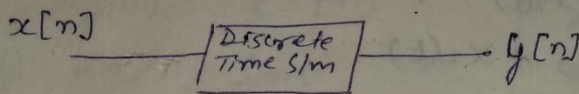 x[n]
Discrete
Time S/m
y[n]